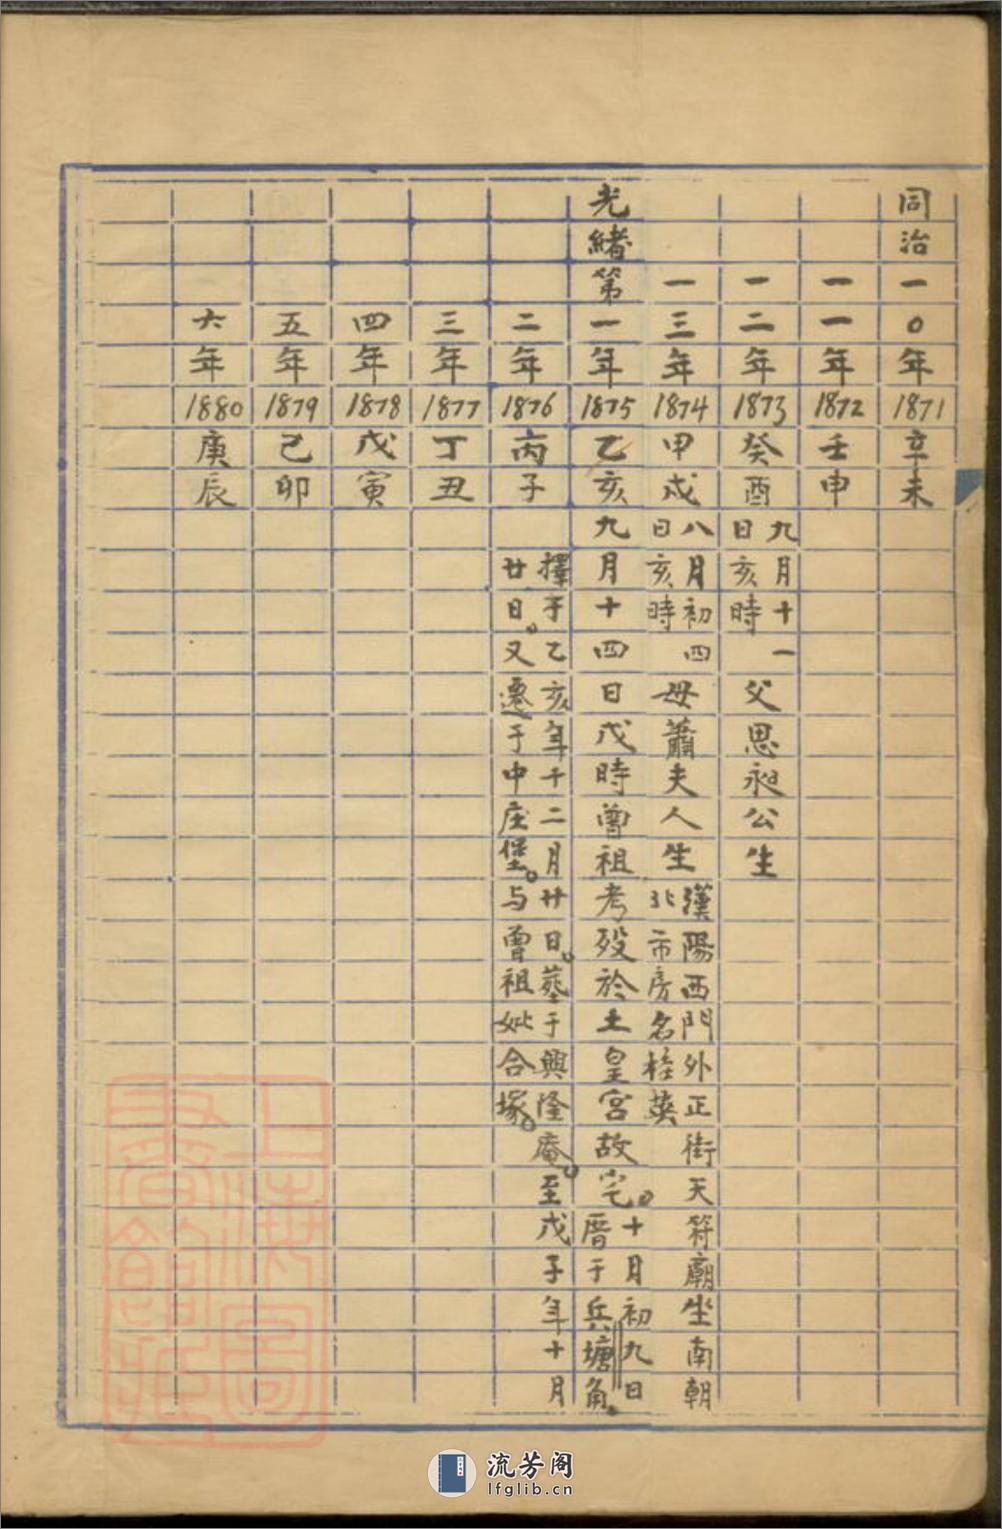 同治一0年1871辛未
一一年1872壬申
一二年1873癸酉九月十一
日亥時
父思昶公生
一三年1874甲戌八月初四
日亥時
母蕭夫人生
漢陽西門外正街天符廟坐南朝
北市房名桂英
光緒第一年1875乙亥九月十四日戌時曾祖考歿於土皇宮故宅。
十月初九日
厝于兵塘角。
二年1876丙子
擇于乙亥年十二月廿日。葬于興隆庵。至戊子年十月
廿日。又遷于中庄堡。与曾祖妣合塚。
三年1877丁丑
四年1878戊寅
五年1879己卯
六年1880庚辰
上海圖
書館藏
流芳阁
lfglib.cn